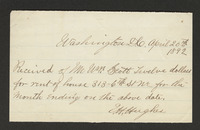 Washington D.C. April 20th
1892
Received of Mr. Wm. Scott Twelve dollars
for rent of house 313-6th St. for the
month ending on the above date.
Hughes